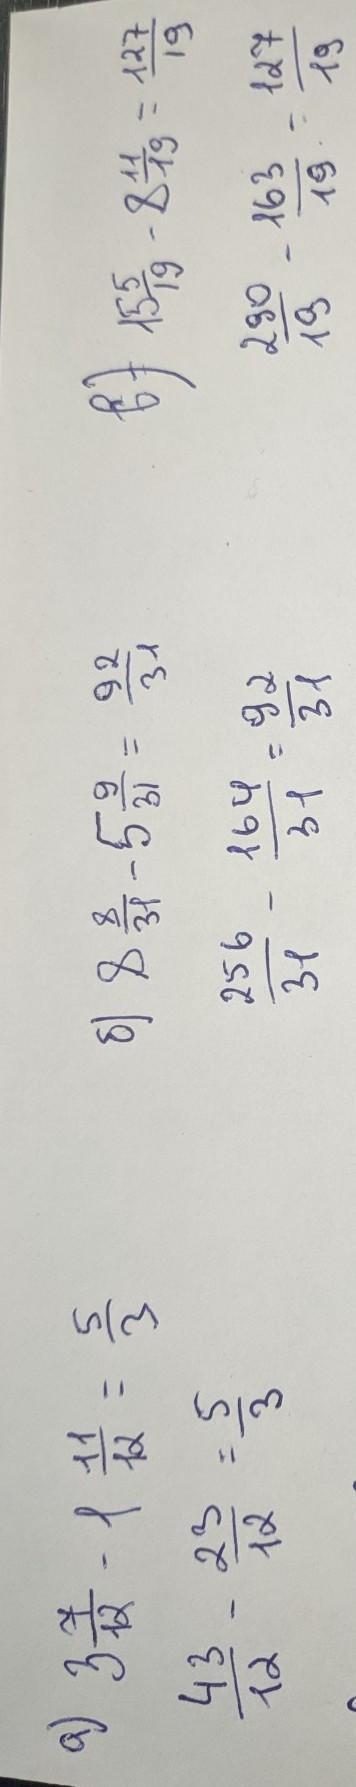 а) 3 7/12 - 1 11/12 = 5/3
43/12 - 23/12 = 5/3
б) 8 8/31 - 5 9/31 = 92/31
256/31 - 164/31 = 92/31
в) 15 5/19 - 8 11/19 = 127/19
290/19 - 163/19 = 127/19